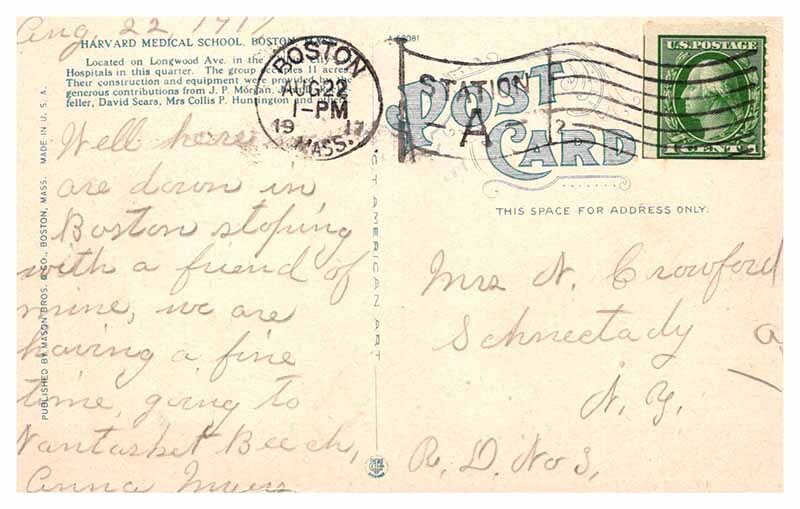 Aug. 22 1917
HARVARD MEDICAL SCHOOL, BOSTON, MASS.
Located on Longwood Ave. in the
Hospitals in this quarter. The group occupies 11 acres.
Their construction and equipment were provided by the
generous contributions from J. P. Morgan,
feller, David Sears, Mrs Collis P. Huntington and others.
Well here
are down in
Boston stoping
with a friend of
mine, we are
having a fine
time, going to
Nantasket Beech,
Anna Myers
PUBLISHED BY MASON BROS. & CO., BOSTON, MASS. MADE IN U. S. A.
A-68081
BOSTON
AUG 22
1-PM
19 17
MASS.
STATION
A
POST
CARD
U.S. POSTAGE
1 CENT 1
AMERICAN ART
THIS SPACE FOR ADDRESS ONLY.
Mrs N. Crowford
Schnectady
N. Y.
R. D. No 3,